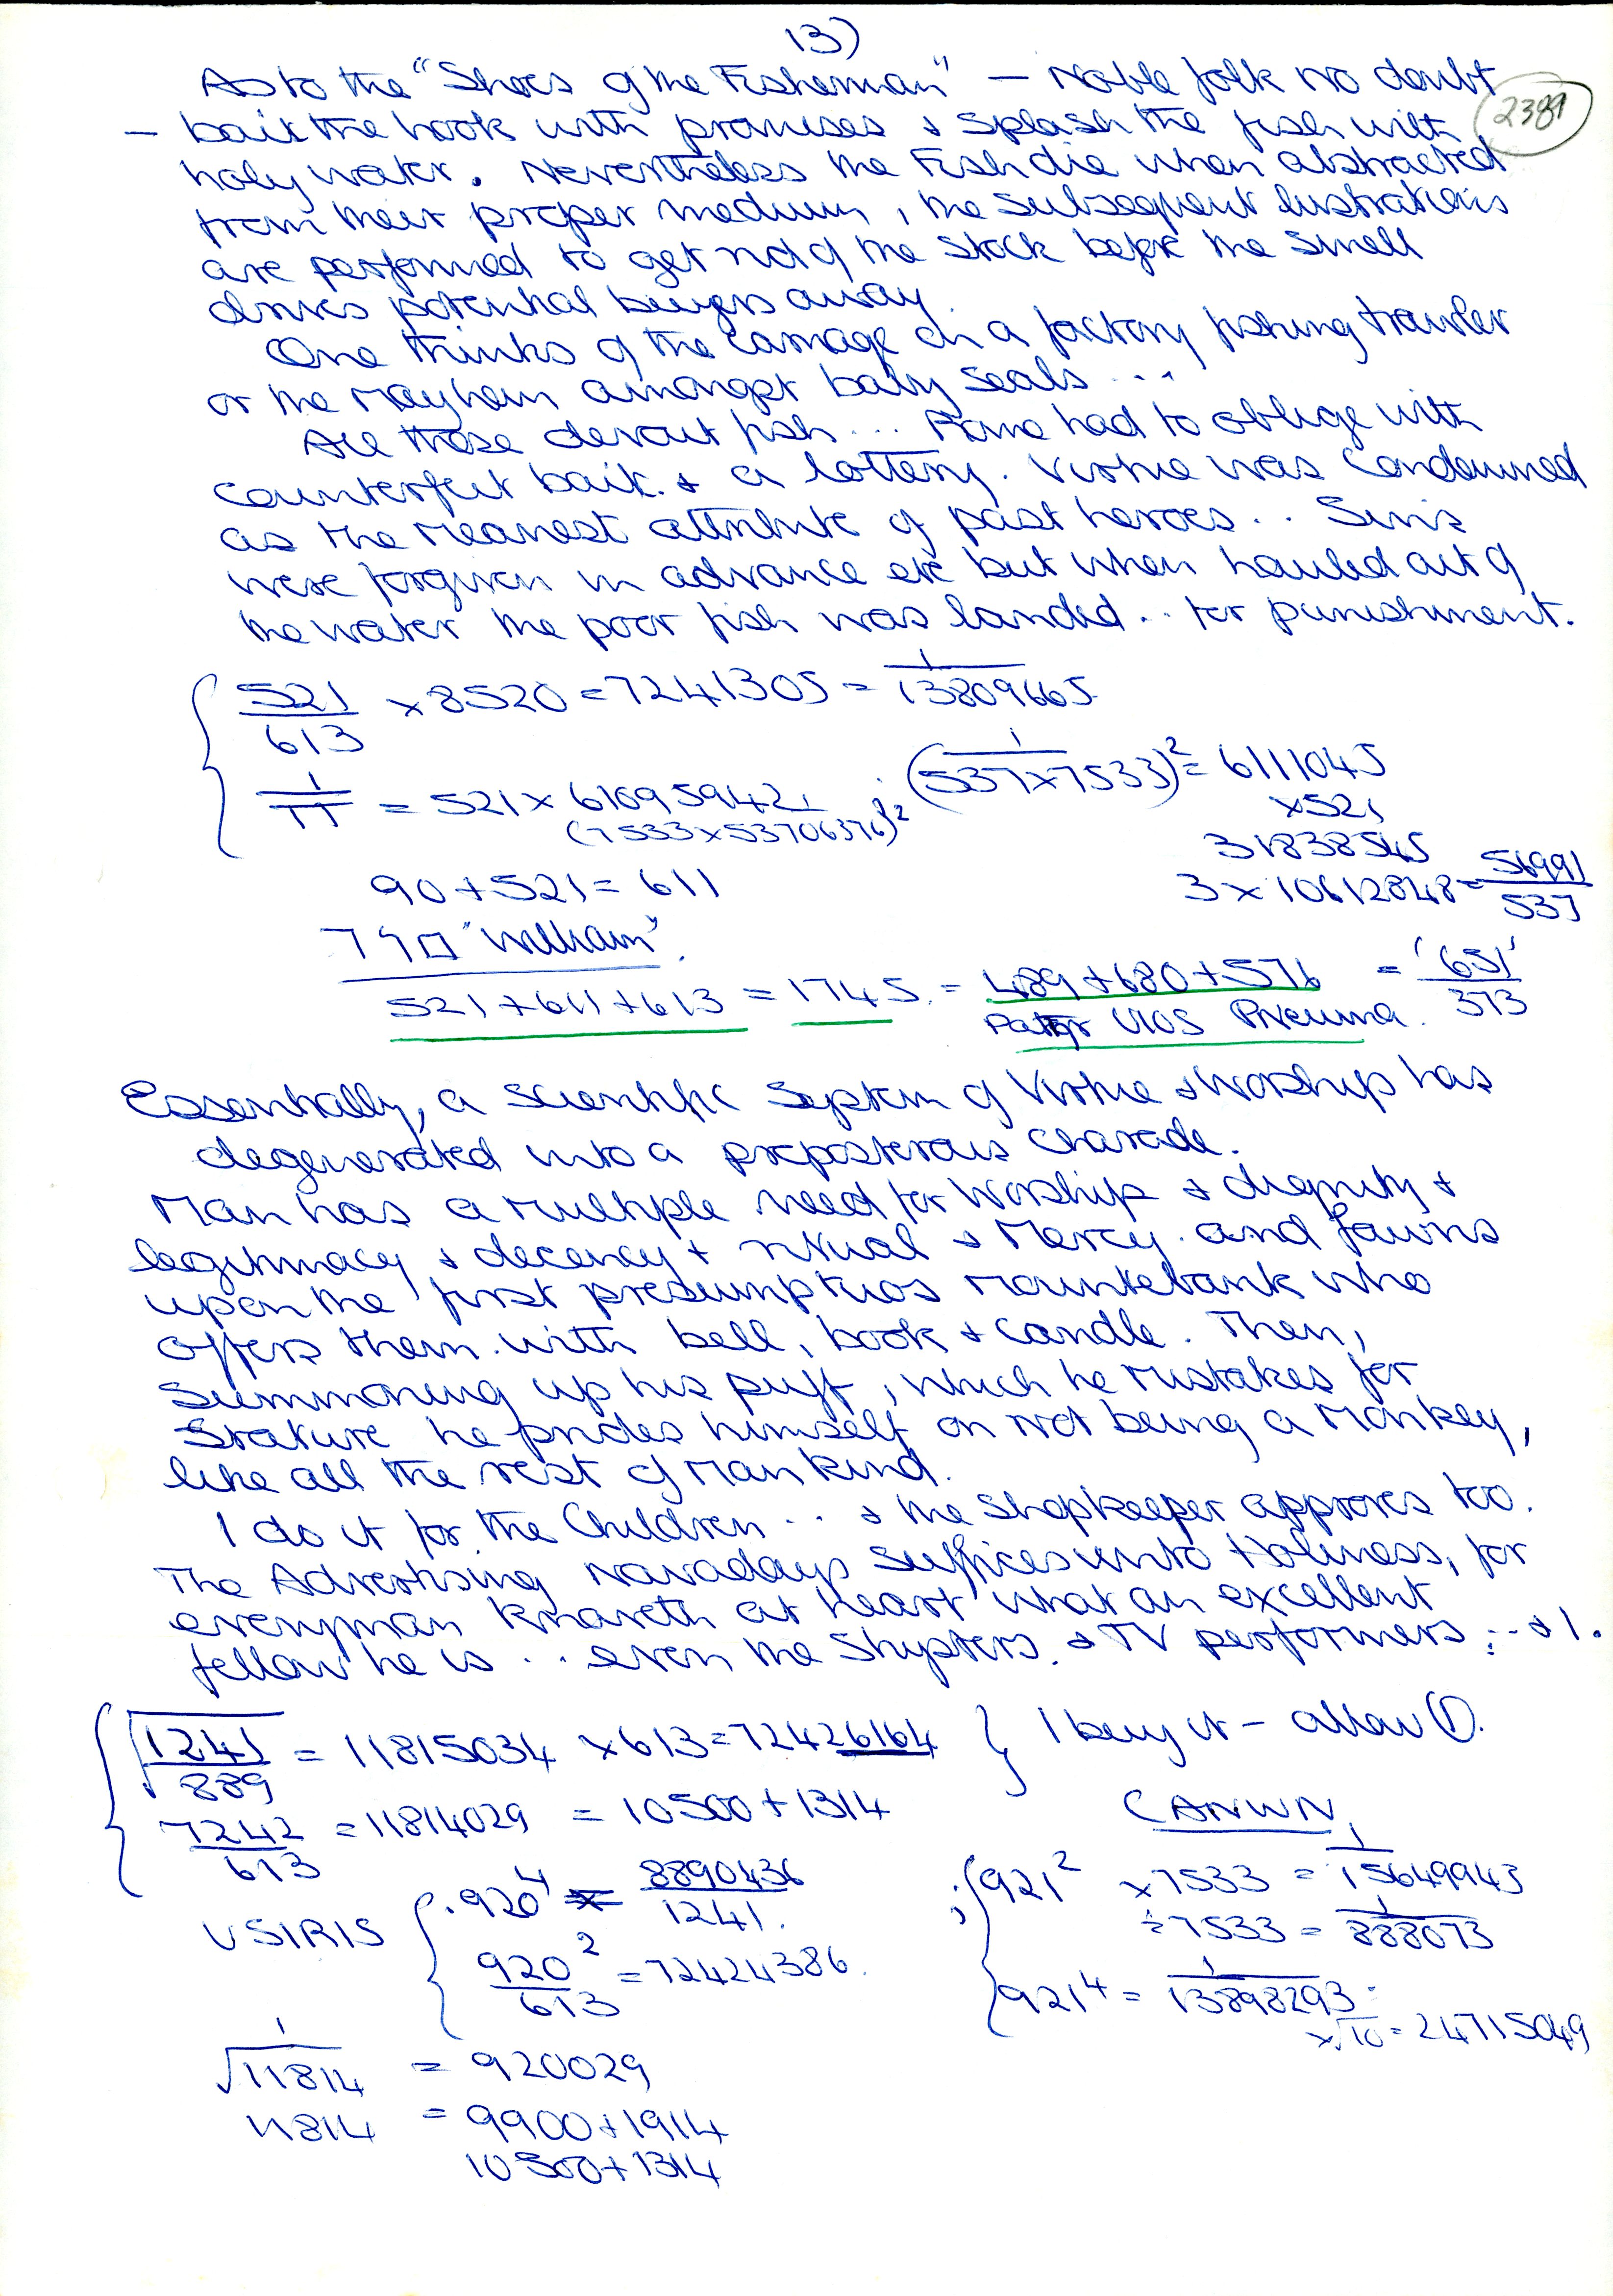 13)
2389
As to the "Shoes of the Fisherman" — Noble folk no doubt
— bait the hook with promises & splash the fish with
holy water. Nevertheless the Fish die when abstracted
from their proper medium, the subsequent lustrations
are performed to get rid of the stock before the smell
drives potential buyers away.
One thinks of the carnage on a factory fishing trawler
or the Mayhem amongst baby seals ...
All those devout fish ... Rome had to oblige with
counterfeit bait & a lottery. Virtue was condemned
as the meanest attribute of past heroes .. Sins
were forgiven in advance etc but when hauled out of
the water the poor fish was landed .. for punishment.
521/613 × 8520 = 7241305 = 1/13809665
1/π = 521 × 61095942, ; (1/537×7533)² = 6111045
(7533×53706376)²
×521
31838545
90 + 521 = 611
3 × 10612848 = 56991/537
790 "William".
521 + 611 + 613 = 1745. = 489 + 680 + 576 = '651'/373
Pater UIOS Pneuma.
Essentially, a scientific System of Virtue & Worship has
degenerated into a preposterous charade.
Man has a multiple need for Worship & dignity &
legitimacy & decency & ritual & Mercy. and fawns
upon the first presumptuos Mountebank who
offers them with bell, book & candle. Then,
Summoning up his puff, which he mistakes for
Stature he prides himself on not being a Monkey,
like all the rest of Mankind.
I do it for the Children .. & the shopkeeper approves too.
The Advertising Nowadays Suffices unto Holiness, for
everyman knoweth at heart what an excellent
fellow he is .. even the Shysters. & TV performers .. & I.
√1241/889 = 11815034 × 613 = 72426164 } I buy it — allow ①.
7242/613 = 11814029 = 10500 + 1314
CANWN
USIRIS
.920⁴ = 8890436/1241.
; 921² × 7533 = 1/15649943
÷ 7533 = 1/888073
920²/613 = 72424386.
921⁴ = 1/13898293 :
×√10 = 24715049
1/√11814 = 920029
11814 = 9900 + 1914
10500 + 1314